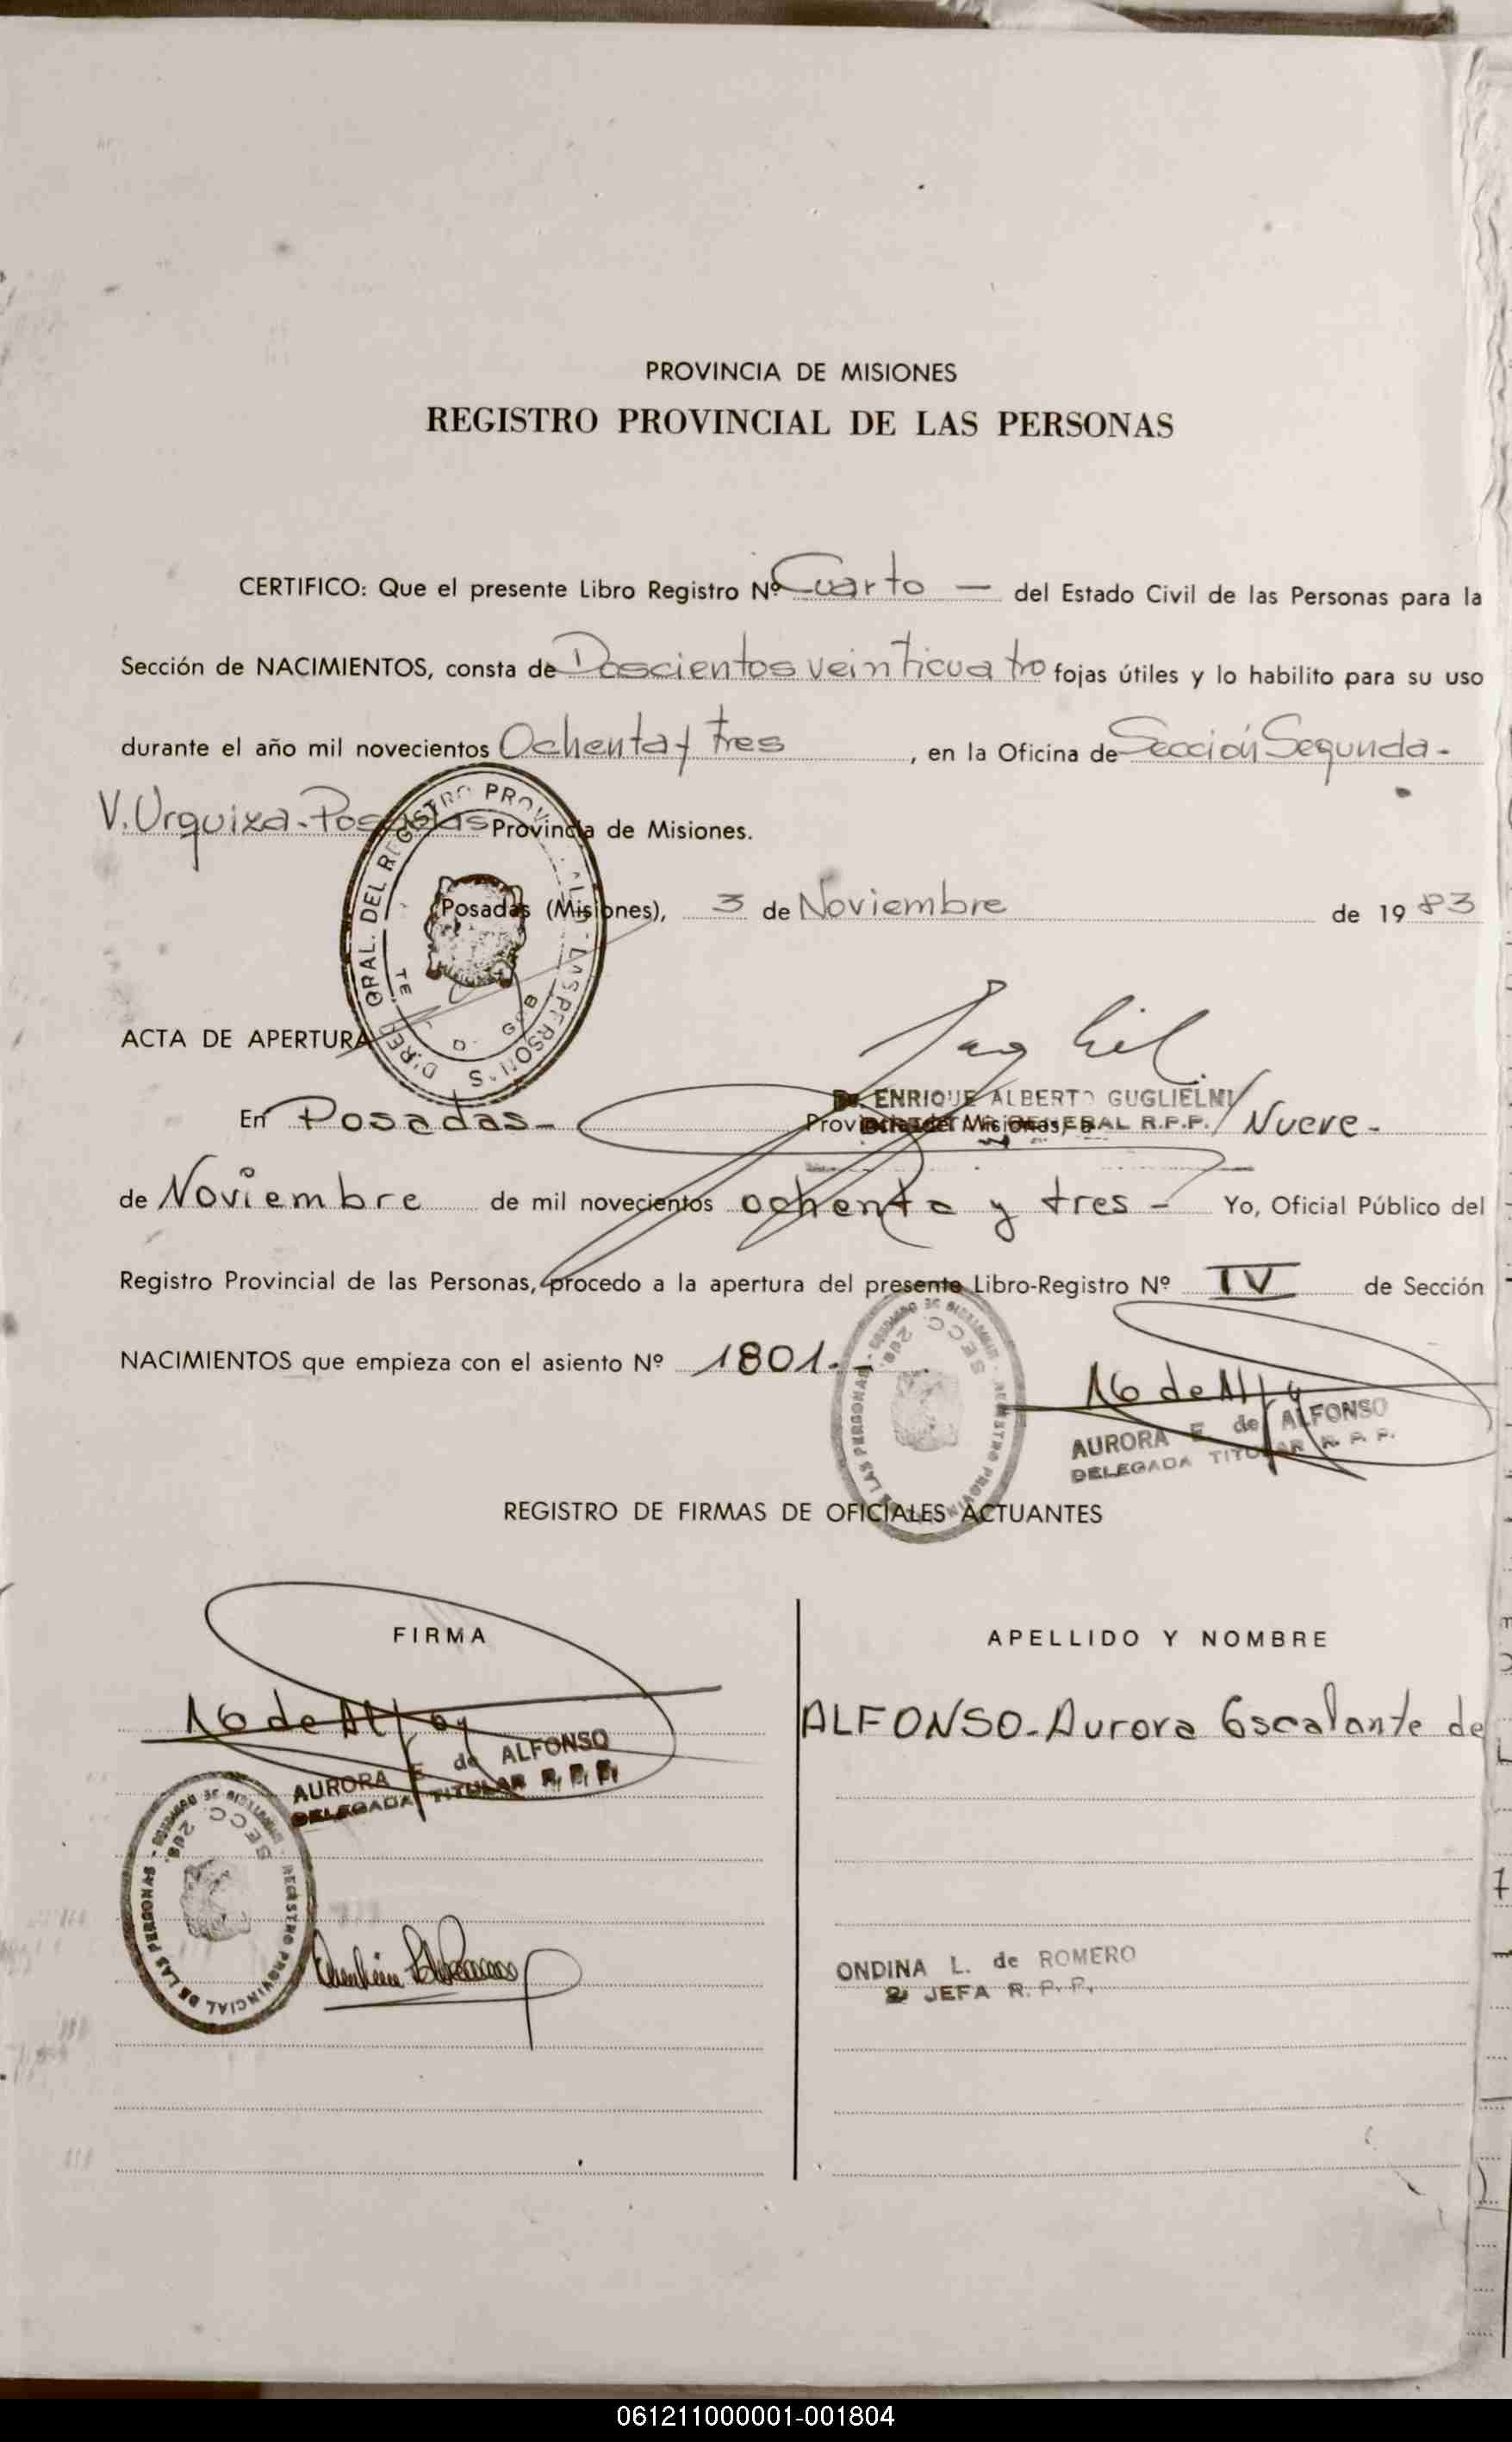 PROVINCIA DE MISIONES
REGISTRO PROVINCIAL DE LAS PERSONAS
CERTIFICO: Que el presente Libro Registro Nº Cuarto — del Estado Civil de las Personas para la
Sección de NACIMIENTOS, consta de Doscientos veinticuatro fojas útiles y lo habilito para su uso
durante el año mil novecientos Ochenta y tres, en la Oficina de Sección Segunda-
V. Urquiza-Posadas Provincia de Misiones.
Posadas (Misiones), 3 de Noviembre de 1983
ACTA DE APERTURA
Dr. ENRIQUE ALBERTO GUGLIELMI
GENERAL R.P.P.
En Posadas- Provincia de Misiones, a Nueve-
de Noviembre de mil novecientos ochenta y tres - Yo, Oficial Público del
Registro Provincial de las Personas, procedo a la apertura del presente Libro-Registro Nº IV de Sección
NACIMIENTOS que empieza con el asiento Nº 1801.-
AURORA E. de ALFONSO
DELEGADA TITULAR R. P. P.
REGISTRO DE FIRMAS DE OFICIALES ACTUANTES
FIRMA
APELLIDO Y NOMBRE
ALFONSO-Aurora Escalante de
AURORA E. de ALFONSO
DELEGADA TITULAR R. P. P.
REGISTRO PROVINCIAL DE LAS PERSONAS
SECC. 2da.
ONDINA L. de ROMERO
JEFA R. P. P.
061211000001-001804